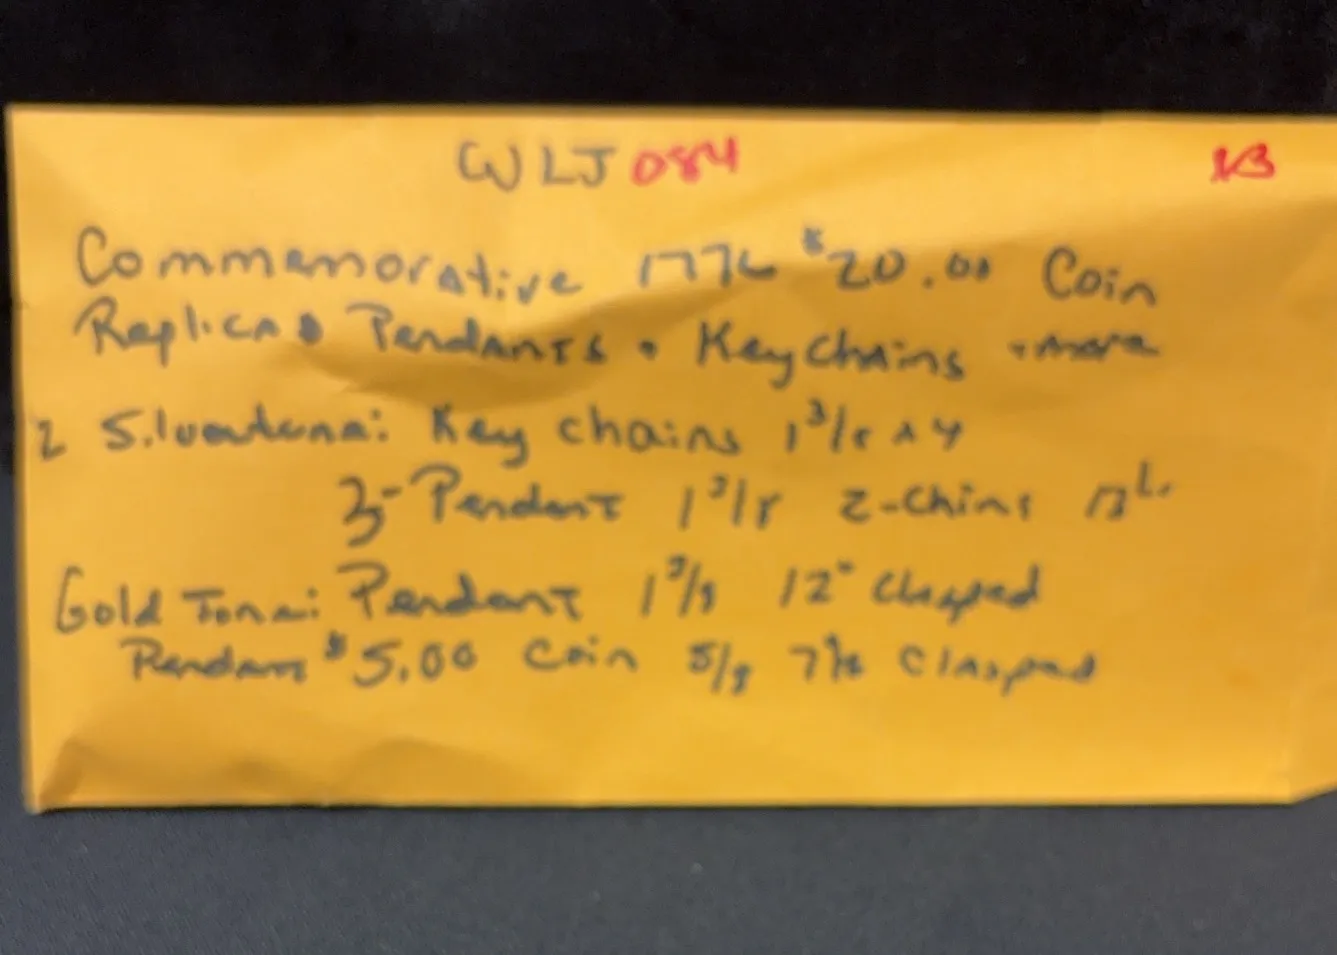 WLJ 084
Commemorative 1776 $20.00 Coin
Replica Pendants • Key Chains • more
2 Silvertone: Key chains 1 3/8 x 4
3- Pendant 1 3/8 2-Chins
Gold Tone: Pendant 1 3/8 12" Clasped
Pendant $5.00 Coin 5/8 Clasped